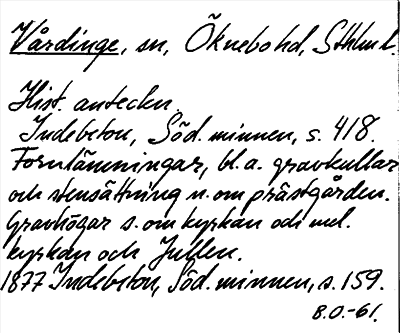 Vårdinge, sn, Öknebo hd, Sthlm l.
Hist. anteckn.
Indebetou, Söd. minnen, s. 418.
Fornlämningar, bl.a. gravkullar
och stensättning n. om prästgården.
Gravhögar s. om kyrkan och mel.
kyrkan och Jullen.
1877 Indebetou, Söd. minnen, s. 159.
B.O.-61.